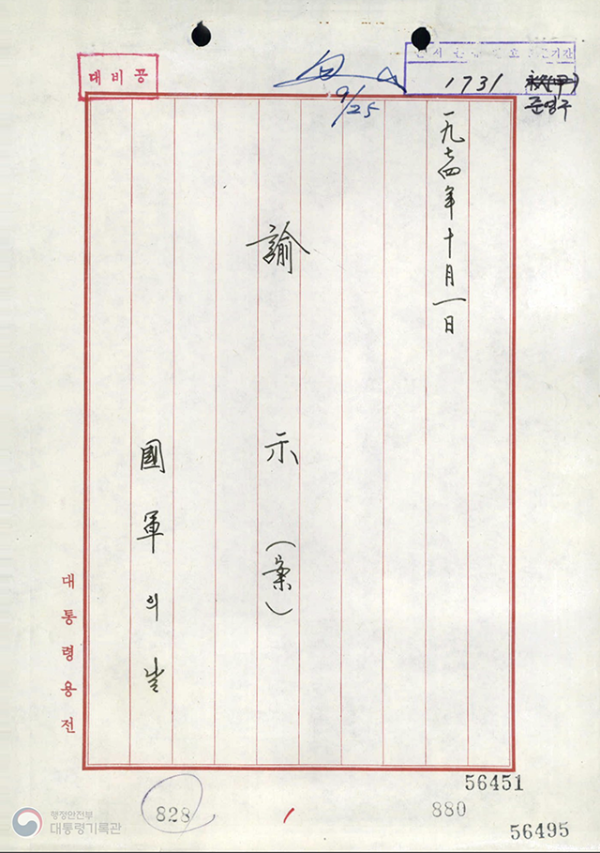 대비공
9/25
1731
준영구
一九七四年十月一日
諭示(案)
國軍의 날
대통령용전
56451
828
880
56495
행정안전부
대통령기록관